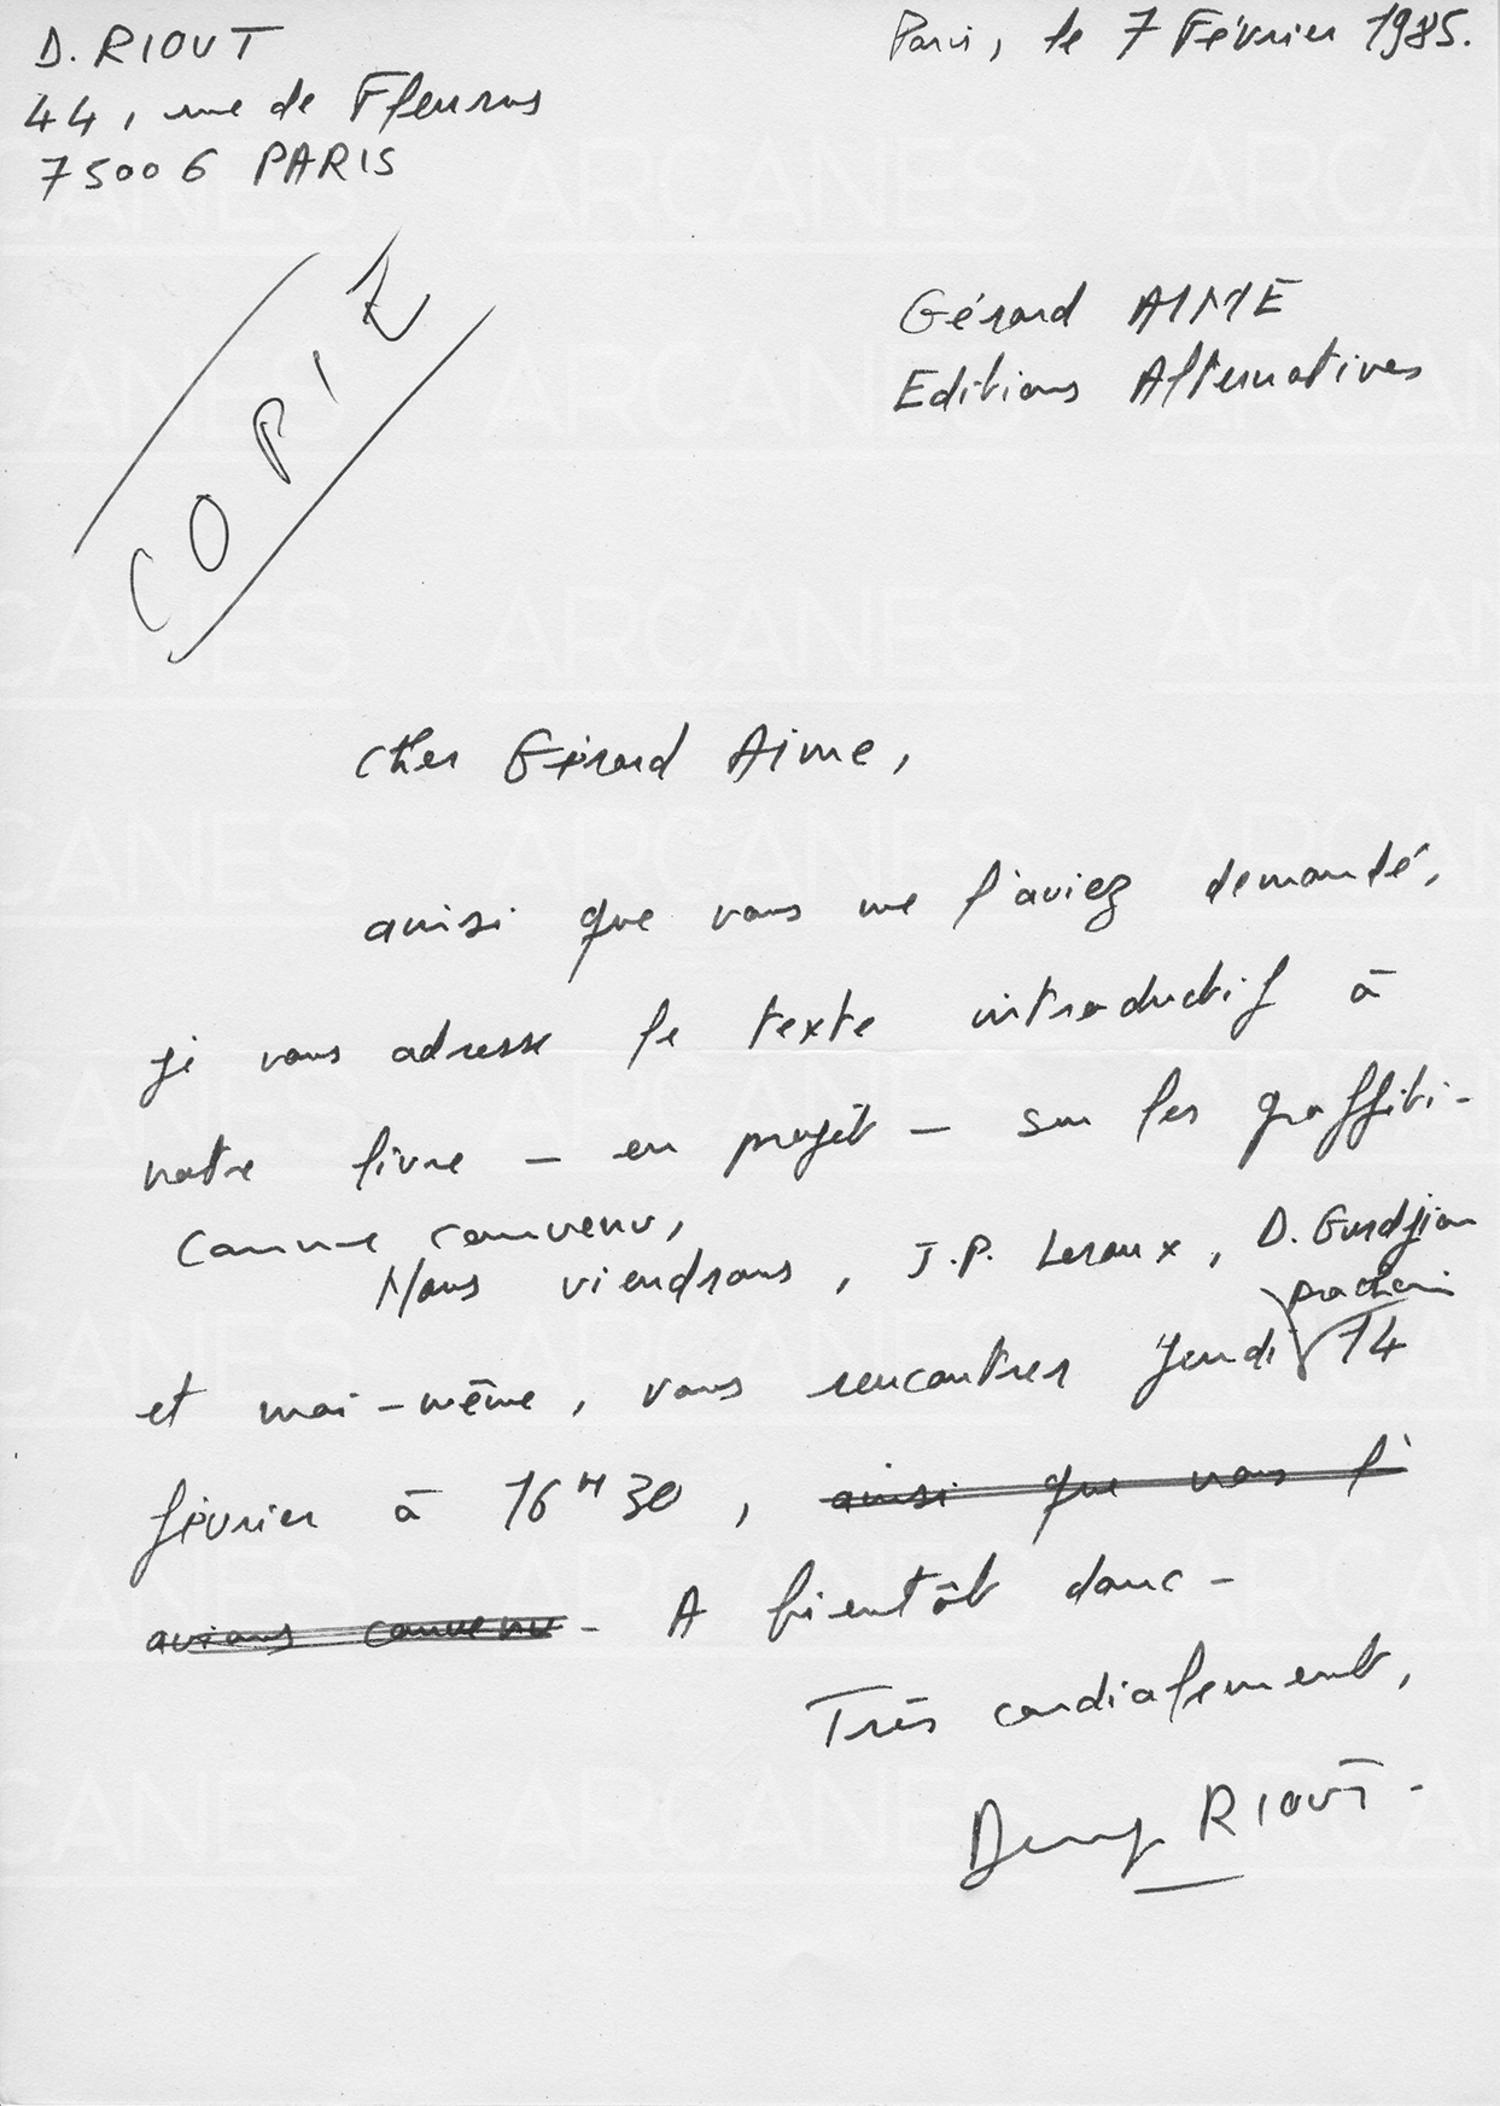 D. RIOUT
44, rue de Fleurus
75006 PARIS
Paris, le 7 Février 1985.
COPIE
Gérard AIME
Editions Alternatives
Cher Gérard Aime,
ainsi que vous me l'aviez demandé,
je vous adresse le texte introductif à
notre livre - en projet - sur les graffiti -
Comme convenu,
Nous viendrons, J.P. Leroux, D. Gurdjian
prochain
et moi-même, vous rencontrer Jeudi 14
février à 16H30, ainsi que nous l'
avions convenu - A bientôt donc -
Très cordialement,
Denys RIOUT -
ARCANES